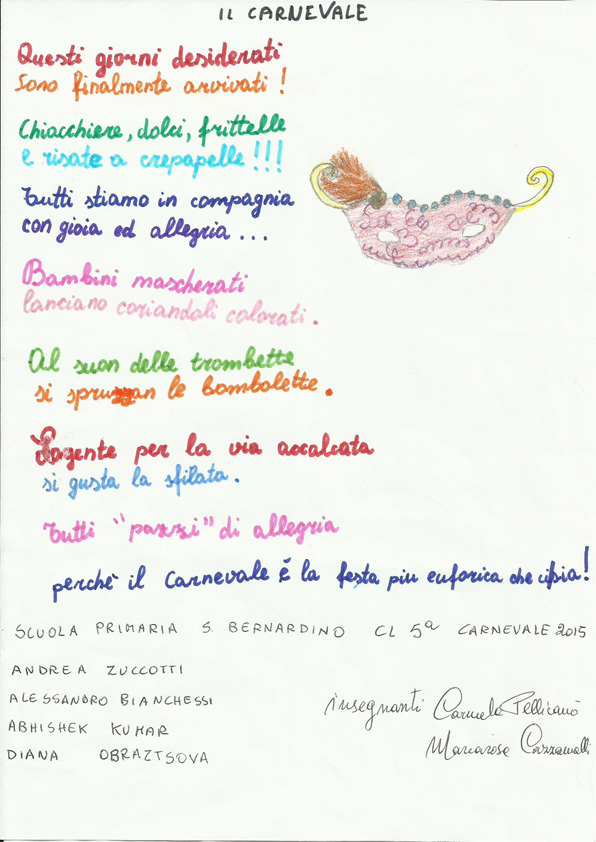 IL CARNEVALE
Questi giorni desiderati
sono finalmente arrivati !
Chiacchiere, dolci, frittelle
e risate a crepapelle !!!
Tutti stiamo in compagnia
con gioia ed allegria ...
Bambini mascherati
lanciano coriandoli colorati .
Al suon delle trombette
si spruzzan le bombolette .
La gente per la via accalcata
si gusta la sfilata .
Tutti "pazzi" di allegria
perchè il Carnevale è la festa piu euforica che ci sia !
SCUOLA PRIMARIA S. BERNARDINO CL 5ª CARNEVALE 2015
ANDREA ZUCCOTTI
ALESSANDRO BIANCHESSI
ABHISHEK KUMAR
DIANA OBRAZTSOVA
insegnanti Carmela Pellicanò
Mariarosa Cazzamalli